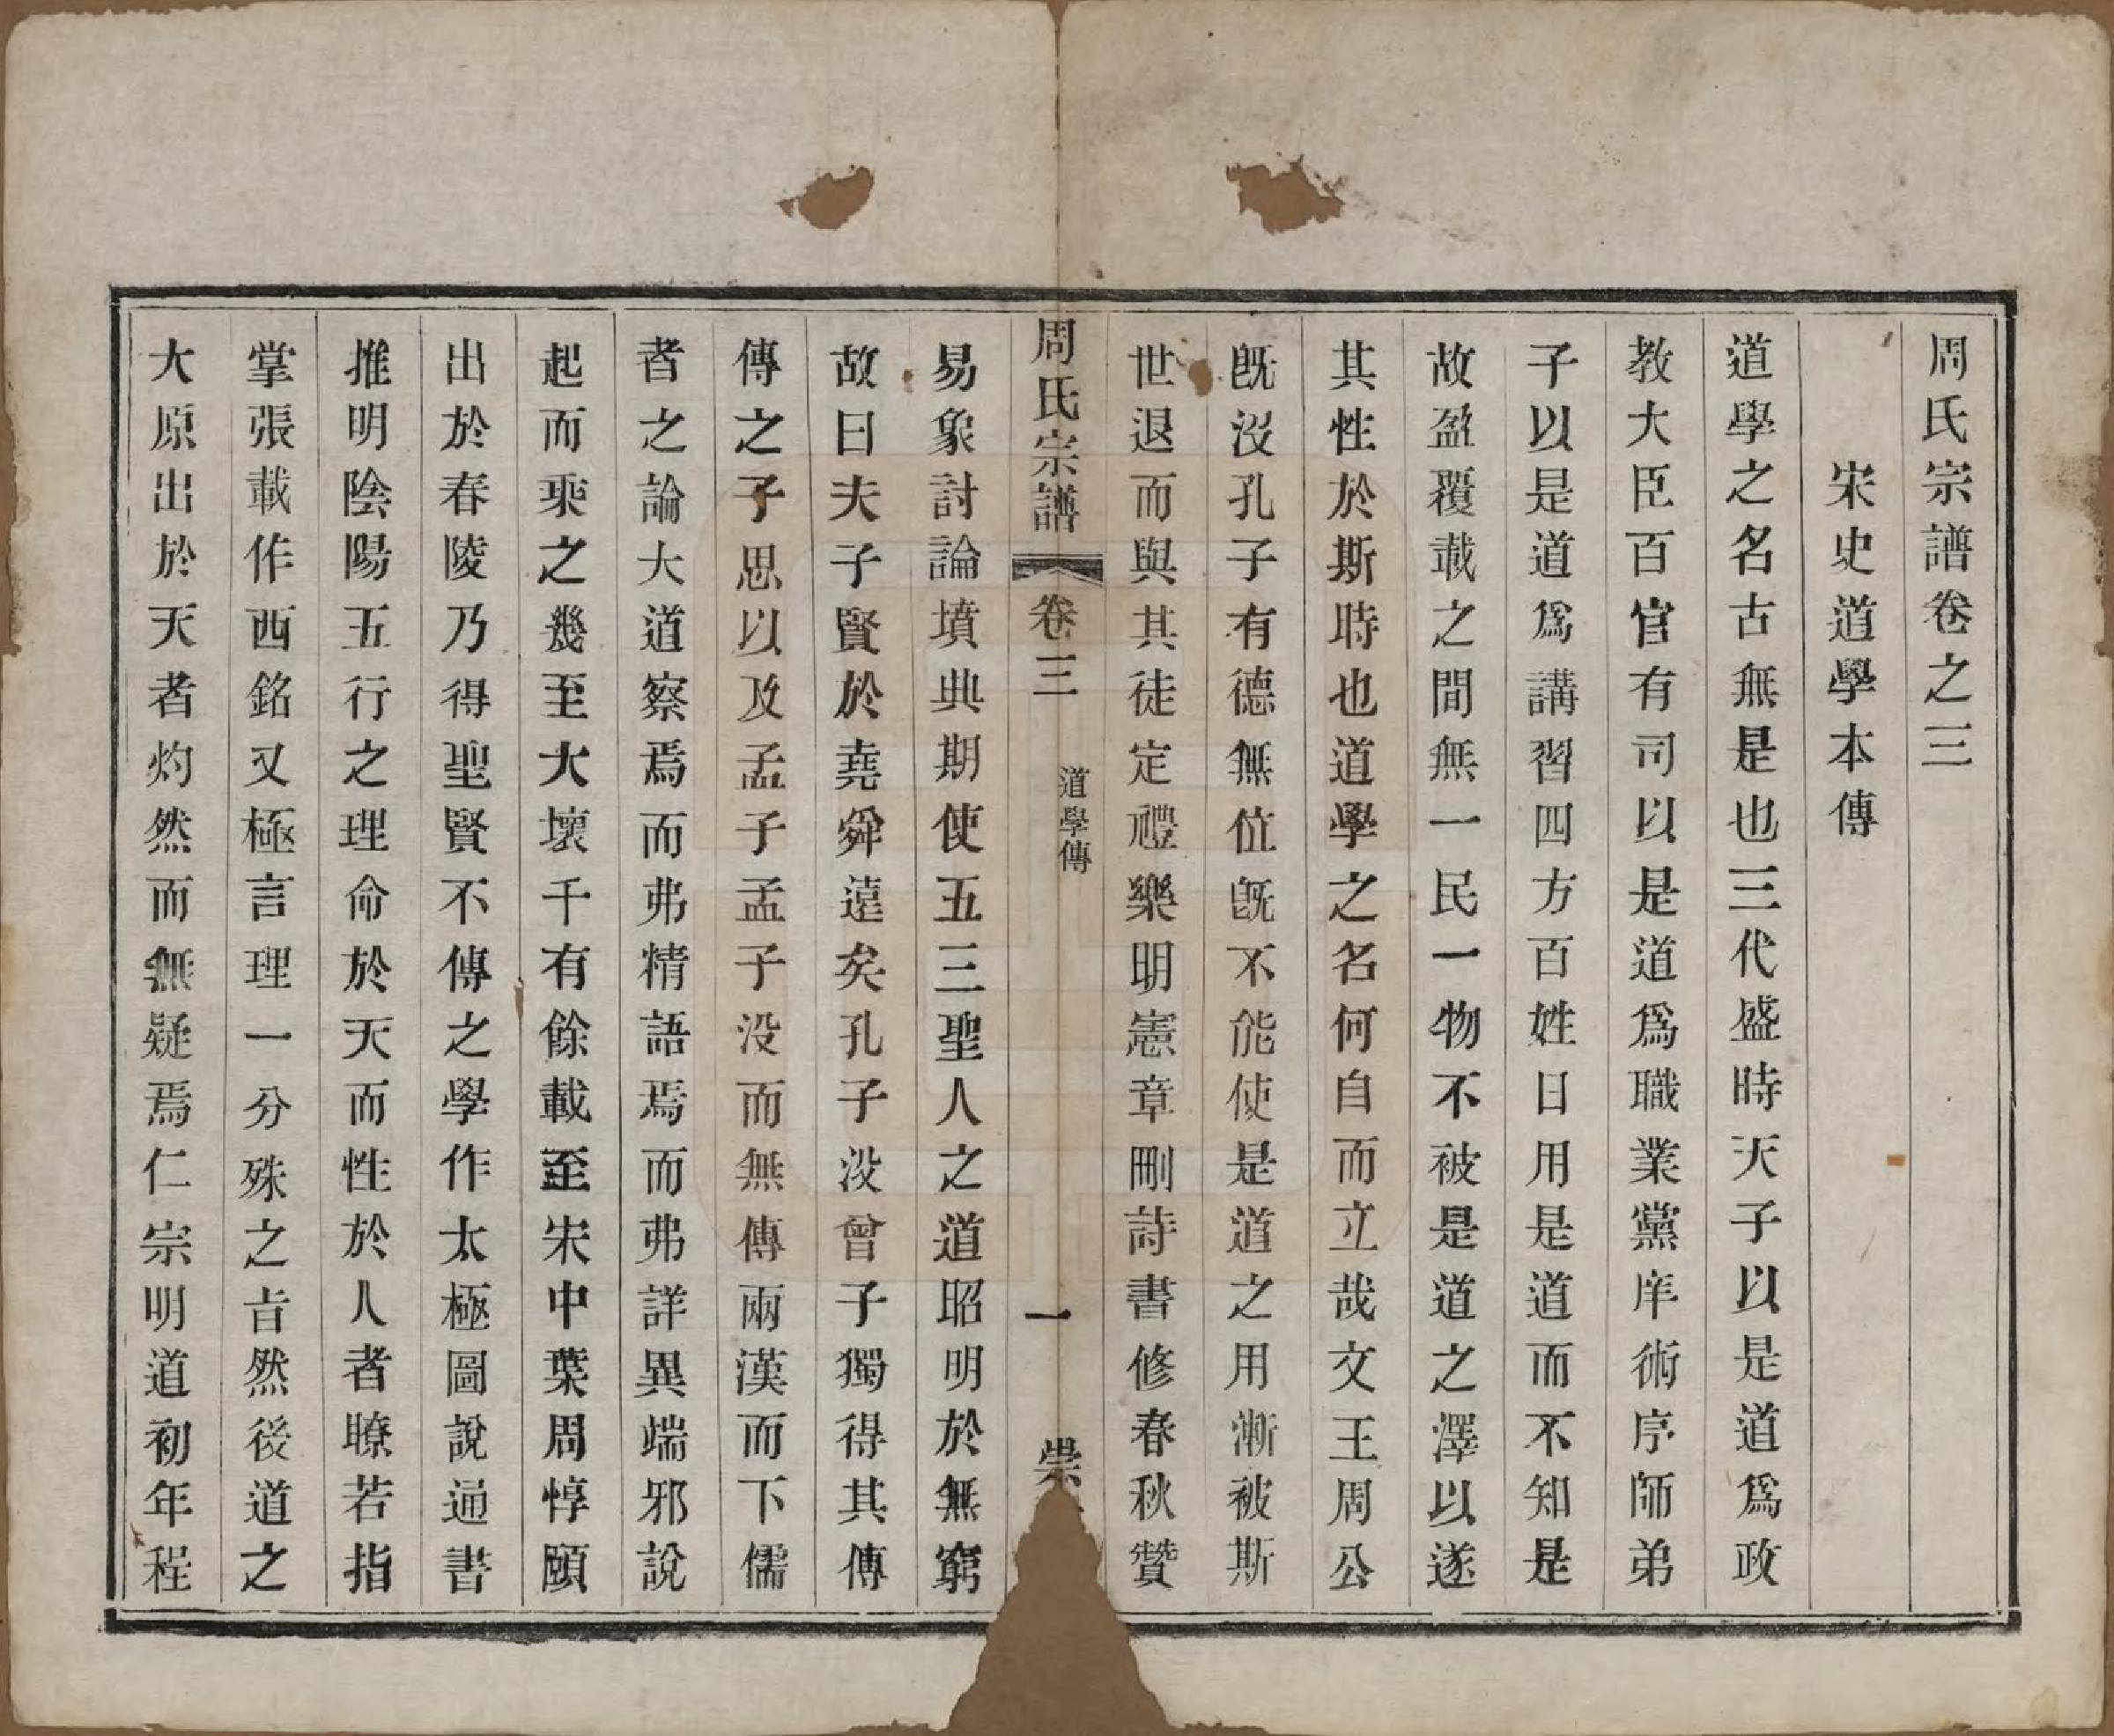 周氏宗譜卷之三
宋史道學本傳
道學之名古無是也三代盛時天子以是道爲政
教大臣百官有司以是道爲職業黨庠術序師弟
子以是道爲講習四方百姓日用是道而不知是
故盈覆載之間無一民一物不被是道之澤以遂
其性於斯時也道學之名何自而立哉文王周公
旣沒孔子有德無位旣不能使是道之用漸被斯
世退而與其徒定禮樂明憲章刪詩書修春秋贊
周氏宗譜
卷三
道學傳
一
崇
易象討論墳典期使五三聖人之道昭明於無窮
故曰夫子賢於堯舜遠矣孔子沒曾子獨得其傳
傳之子思以及孟子孟子没而無傳兩漢而下儒
者之論大道察焉而弗精語焉而弗詳異端邪說
起而乘之幾至大壞千有餘載至宋中葉周惇頤
出於春陵乃得聖賢不傳之學作太極圖說通書
推明陰陽五行之理命於天而性於人者瞭若指
掌張載作西銘又極言理一分殊之旨然後道之
大原出於天者灼然而無疑焉仁宗明道初年程